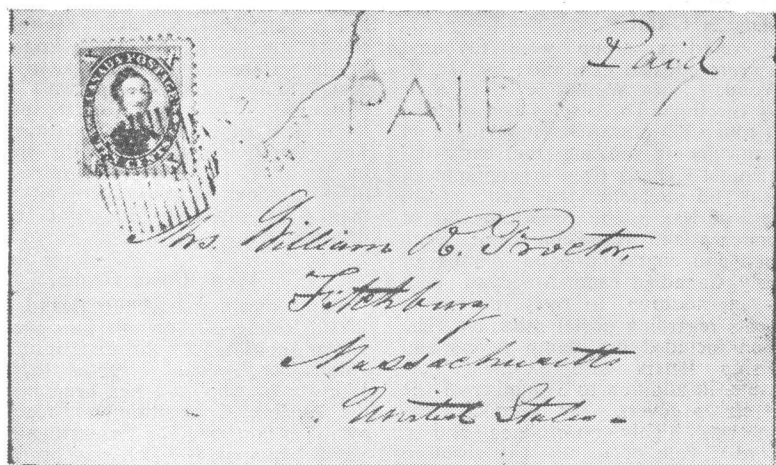 Paid
PAID
CANADA POSTAGE
TEN CENTS
Mrs. William R. Proctor,
Fitchburg
Massachusetts
United States -